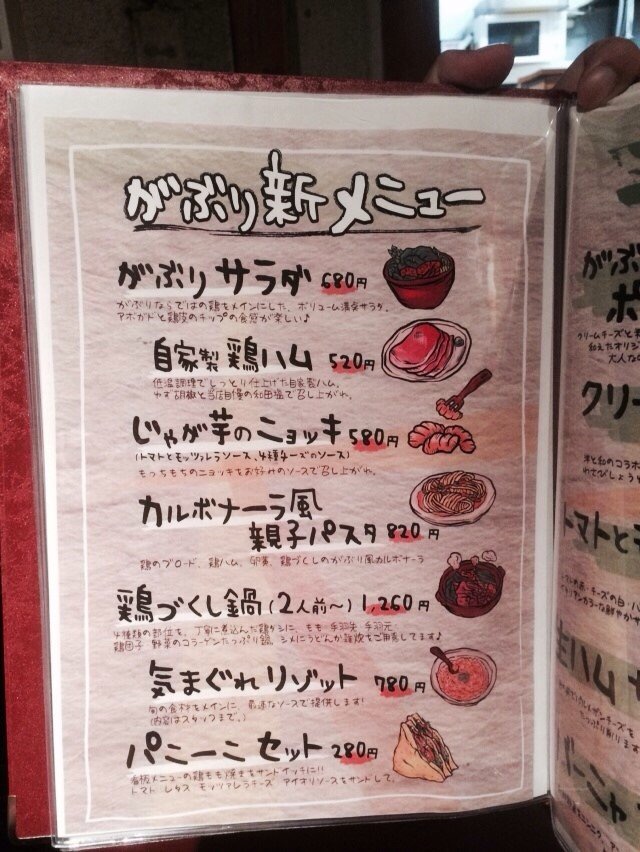 がぶり新メニュー
がぶりサラダ 680円
がぶりならではの鶏をメインにした、ボリューム満点サラダ。
アボガドと鶏皮のチップの食感が楽しい♪
自家製 鶏ハム 520円
低温調理でしっとり仕上げた自家製ハム。
ゆず胡椒と当店自慢の和田塩で召し上がれ。
じゃが芋のニョッキ 580円
(トマトとモッツァレラソース、4種チーズのソース)
もっちもちのニョッキをお好みのソースで召し上がれ。
カルボナーラ風
親子パスタ 820円
鶏のブロード、鶏ハム、卵黄、鶏づくしのがぶり風カルボナーラ
鶏づくし鍋(2人前～) 1,260円
4種類の部位を、丁寧に煮込んだ鶏ダシに、もも 手羽先 手羽元
鶏団子 野菜のコラーゲンたっぷり鍋。シメにうどんか雑炊をご用意してます♪
気まぐれリゾット 780円
旬の食材をメインに、最適なソースで提供します!
(内容はスタッフまで。)
パニーニセット 280円
看板メニューの鶏もも焼きをサンドイッチに!!
トマト レタス モッツァレラチーズ アイオリソースをサンドして。
がぶ
ボ
クリームチーズと
和えたオリジ
大人な
クリー
トマトと
生ハム
バーニャ